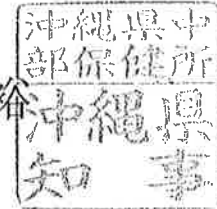 沖縄県中
部保健所
沖縄県
知事